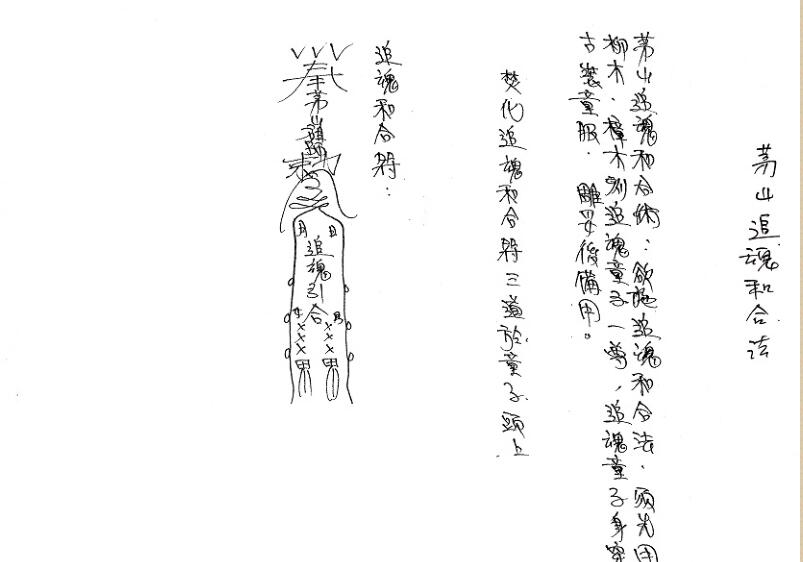 茅山追魂和合法
茅山追魂和合術：欲施追魂和合法．須先用
柳木．樟木刻追魂童子一尊，追魂童子身穿
古裝童服．雕好後備用。
焚化追魂和合符三道於童子頭上
追魂和合符：
奉茅山
追魂引合
月 日
女 男
×××
×××